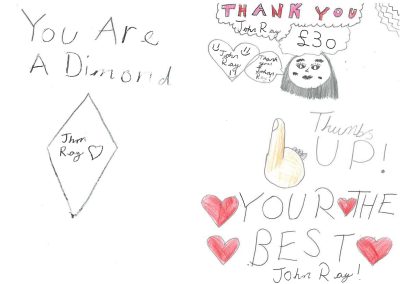 You Are
A Dimond
Jhon
Ray
THANK YOU
John Ray
£30
John
Ray
Thank
you
John
Thumbs
UP!
YOUR THE
BEST
John Ray!